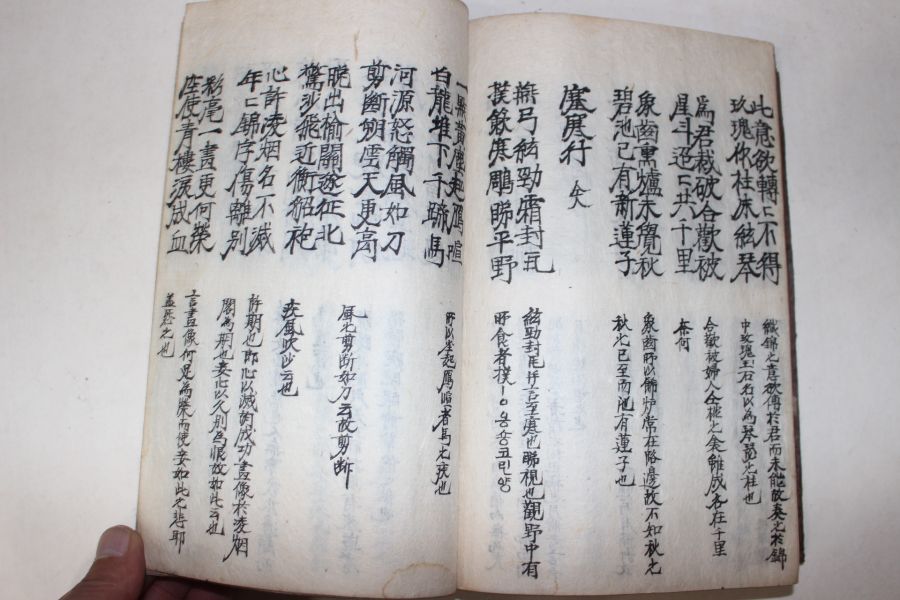 此意欲轉轉不得
玫瑰作柱朱絃琴
爲君裁破合歡被
星斗迢迢共千里
象齒熏爐未覺秋
碧池已有新蓮子
塞寒行 仝人
燕弓絃勁霜封瓦
撲簌寒鵰睇平野
一點黃塵起鴈喧
白龍堆下千蹄馬
河源怒觸風如刀
剪斷朔雲天更高
晚出榆關逐征北
驚沙飛迸衝貂袍
心許凌烟名不滅
年年錦字傷離別
彩毫一畫更何榮
座使青樓淚成血
織錦之意欲傳於君而未能故奏之於錦
中玫瑰玉石名以爲琴瑟之柱也
合歡被婦人合枕之矣離成各在千里
奈何
象齒所以飾炉常在路邊故不知秋之
秋之已至而池有蓮子也
絃勁封瓦幷言至寒也睇視也觀野中有
所食者撲
所以塵起鴈喧者馬之疾也
風之剪斷如刀云故剪斷
疾風吹沙云也
許期也郎心以滅匈成功畫像於凌烟
閣爲期也妾心以久別爲恨故如此云也
言畫像何足爲榮而使妾如此之悲耶
盖怨之也